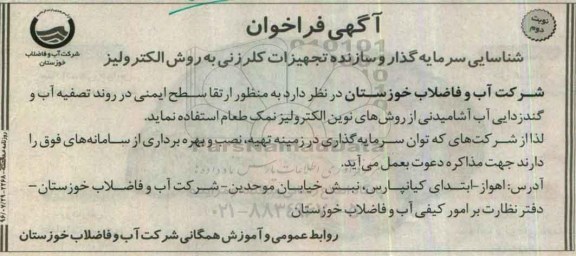 نوبت دوم
آگهی فراخوان
شرکت آب و فاضلاب
خوزستان
شناسایی سرمایه گذار و سازنده تجهیزات کلرزنی به روش الکترولیز
شرکت آب و فاضلاب خوزستان در نظر دارد به منظور ارتقا سطح ایمنی در روند تصفیه آب و
گندزدایی آب آشامیدنی از روش‌های نوین الکترولیز نمک طعام استفاده نماید.
لذا از شرکت‌های که توان سرمایه‌گذاری در زمینه تهیه، نصب و بهره برداری از سامانه‌های فوق را
دارند جهت مذاکره دعوت بعمل می‌آید.
آدرس: اهواز-ابتدای کیانپارس، نبش خیابان موحدین-شرکت آب و فاضلاب خوزستان-
دفتر نظارت بر امور کیفی آب و فاضلاب خوزستان
روابط عمومی و آموزش همگانی شرکت آب و فاضلاب خوزستان